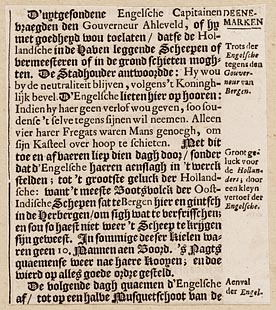 D'uytgesondene Engelsche Capitainen
vraegden den Gouverneur Ahleveld, of hy
met goedheyd wou toelaten / datse de Hol-
landsche in de Haven leggende Scheepen of
vermeesteren of in de grond schieten mogh-
ten. De Stadhouder antwoordde: Hy wou
by de neutraliteit blijven, volgens't Koningh-
lijk bevel. D'Engelsche lieten hier op hooren:
Indien hy haer geen verlof wou geven, soo sou-
dense 't selve tegens sijnen wil neemen. Alleen
vier harer Fregats waren Mans genoegh, om
sijn Kasteel over hoop te schieten. Met dit
toe en afvaeren liep dien dagh door / sonder
dat d'Engelsche haeren aenslagh in 't werck
stelden; tot 't grootste geluck der Holland-
sche: want 't meeste Bootsvolck der Oost-
Indische Schepen sat te Bergen hier en gintsch
in de Herbergen / om sigh wat te verfrisschen;
en son so haest niet weer 't Scheep te krijgen
sijn geweest. In sommige deeser Kielen wa-
ren geen 10. Mannen aen Boord. 's Nagts
quamense weer nae haere Koopen; en doe
wierd op alles goede ordre gesteld.
De volgende dagh quaemen d'Engelsche
af / tot op een halve Musquetschoot van de
DEENE-
MARKEN
Trots der
Engelsche
tegens den
Gouver-
neur van
Bergen.
Groot ge-
luck voor
de Hollan-
ders; door
een kleyn
vertoef der
Engelsche.
Aenval
der Engel-